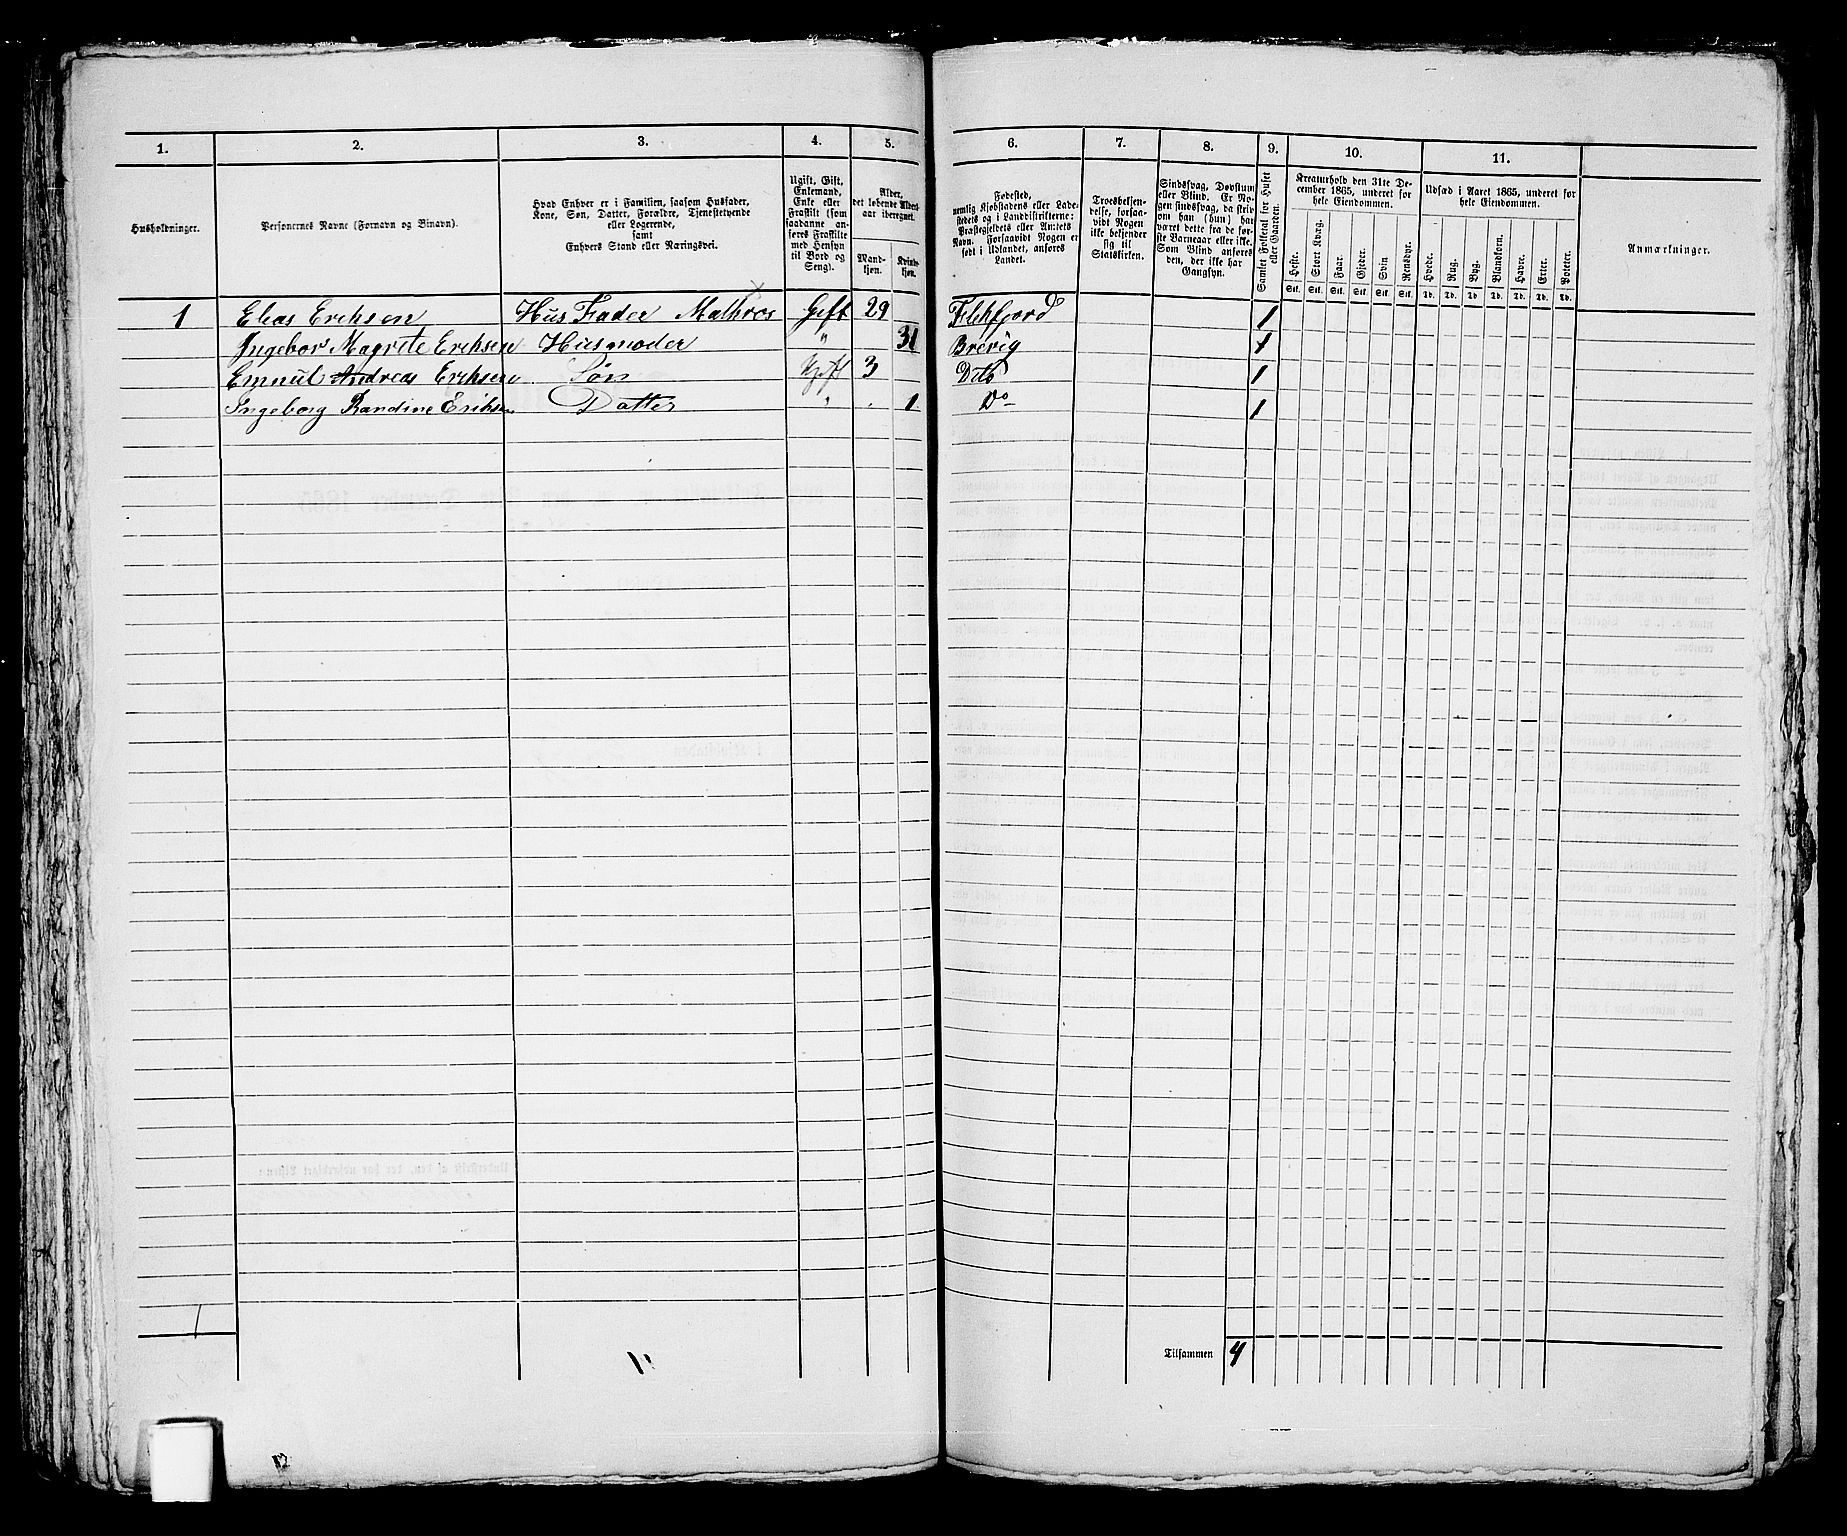 1. 2. 3. 4. 5. 6. 7. 8. 9. 10. 11.
Husholdninger.
Personernes Navne (Fornavn og Binavn).
Hvad Enhver er i Familien, saasom Husfader,
Kone, Søn, Datter, Forældre, Tjenestetyende
eller Logerende,
samt
Enhvers Stand eller Næringsvei.
Ugift, Gift,
Enkemand,
Enke eller
Fraskilt (som
saadanne an-
føres Fraskilte
med Hensyn
til Bord og
Seng).
Alder,
det løbende Alders-
aar iberegnet.
Mand-
kjøn.
Kvinde-
kjøn.
Fødested,
nemlig Kjøbstadens eller Lade-
stedets og i Landdistrikterne:
Præstegjeldets eller Amtets
Navn. Forsaavidt Nogen er
født i Udlandet, anføres
Landet.
Troesbekjen-
delse, forsaa-
vidt Nogen
ikke bekjender
sig til
Statskirken.
Sindssvag, Døvstum
eller Blind. Er No-
gen sindssvag, da skriv
om han (hun) har
været dette fra de før-
ste Barneaar eller ikke.
Som Blind anføres
den, der ikke har
Gangsyn.
Samlet Folketal for Huset
eller Gaarden.
Kreaturhold den 31te De-
cember 1865, underet for
hele Eiendommen.
Heste. Stort Kvæg. Faar. Gjeder. Svin Rensdyr.
Stk. Stk. Stk. Stk. Stk. Stk.
Udsæd i Aaret 1865, underet for
hele Eiendommen.
Hvede. Rug. Byg. Blandkorn. Havre. Erter. Poteter.
Td. Td. Td Td. Td. Td. Td.
Anmærkninger.
1 Elias Erichsen Hus Fader Mathros Geft 29 Flekfjord 1
Ingebor Magrete Erichsen Husmoder " 31 Brevig 1
Emnul Andreas Erichsen Søn Ugift 3 Dito 1
Ingeborg Randine Eriksen Datter " 1 Do 1
1
Tilsammen 4